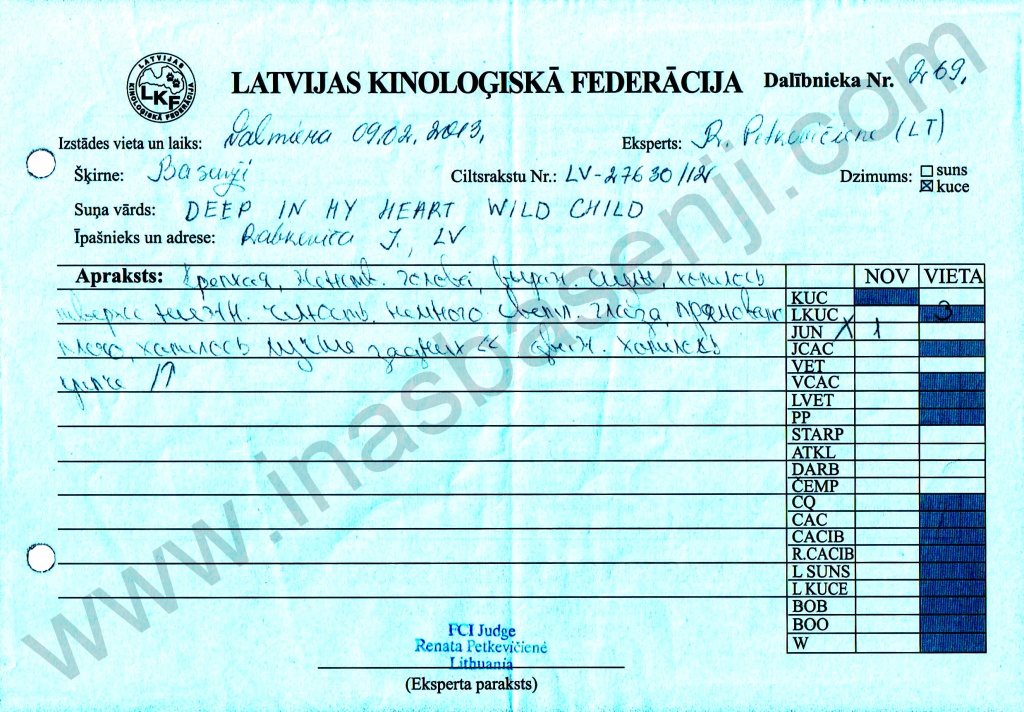 LATVIJAS KINOLOĢISKĀ FEDERĀCIJA
LKF
LATVIJAS KINOLOĢISKĀ FEDERĀCIJA Dalībnieka Nr. 269.
Izstādes vieta un laiks: Valmiera 09.02.2013. Eksperts: R. Petkevičiene (LT)
Šķirne: Basenji Ciltsrakstu Nr.: LV-27630/12 Dzimums: suns
☒ kuce
Suņa vārds: DEEP IN MY HEART WILD CHILD
Īpašnieks un adrese: J., LV
Apraksts: Крепкая, женств. голова, хотелось
немного светл. глаза,
хотелось лучше задних движ. хотелось
NOV VIETA
KUC
LKUC 3
JUN X 1
JCAC
VET
VCAC
LVET
PP
STARP
ATKL
DARB
ČEMP
CQ
CAC
CACIB
R.CACIB
L SUNS
L KUCE
BOB
BOO
W
FCI Judge
Renata Petkevičienė
Lithuania
(Eksperta paraksts)
www.inasbasenji.com